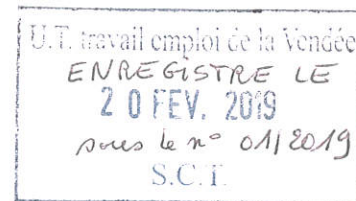 U.T. travail emploi de la Vendée
ENREGISTRE LE
20 FEV. 2019
sous le n° 01/2019
S.C.T.